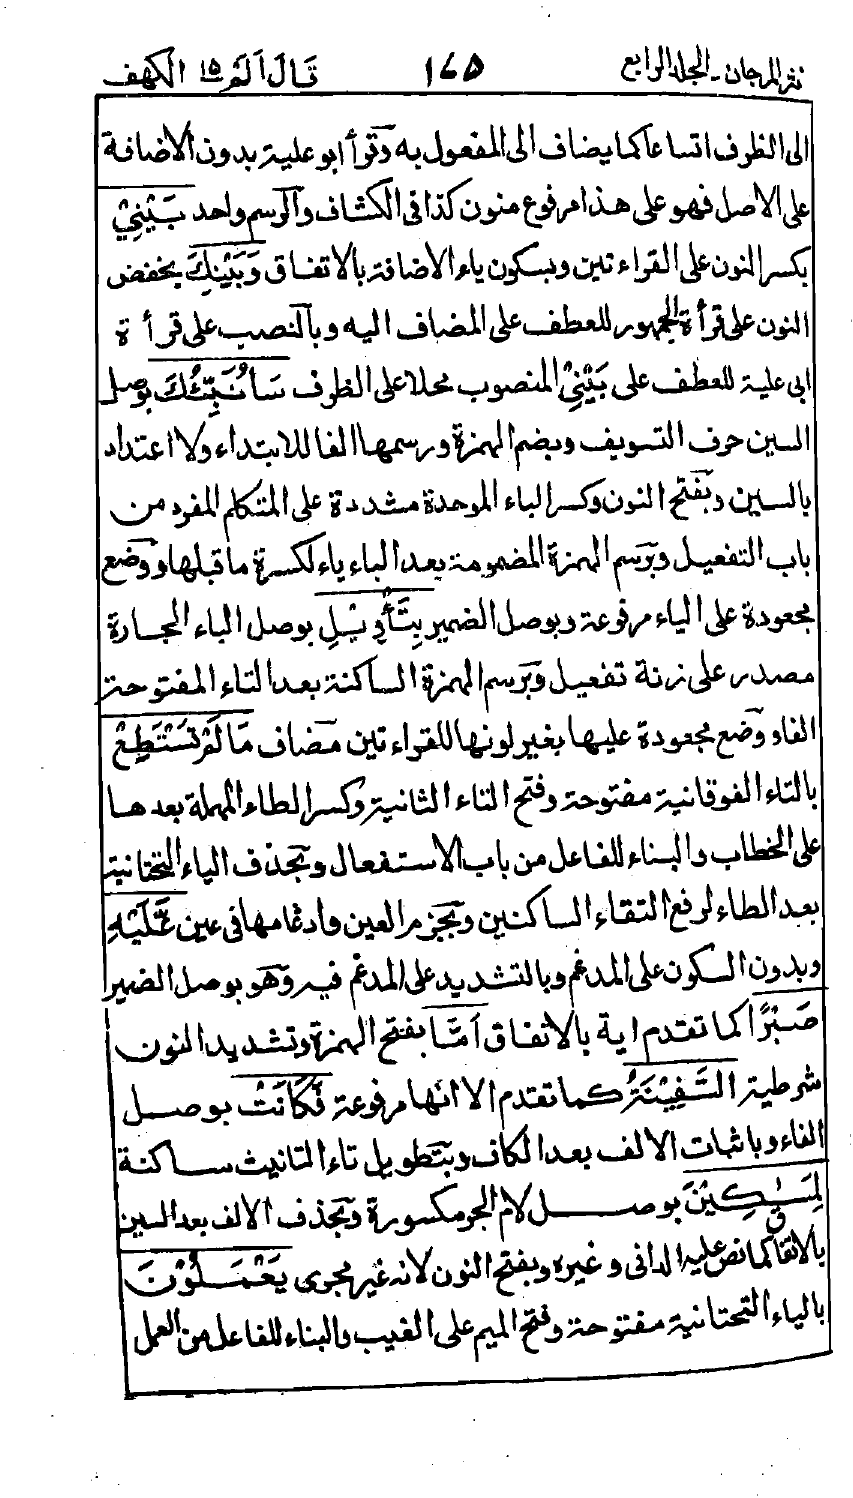 نثر المرجان ـ المجلد الرابع ١٤٥ قَالَ اَلَمْ ١٥ الكهف
الى الظرف اتساعا كما يضاف الى المفعول به وَقرأ ابو علية بدون الاضافة
على الاصل فهو على هذا مرفوع منون كذا فى الكشاف وَالرسم واحد بَيْنِيْ
بكسر النون على القراءتين وبسكون ياء الاضافة بالاتفاق وَبَيْنِكَ بخفض
النون على قرأة الجمهور للعطف على المضاف اليه وبالنصب على قرأة
ابى علية للعطف على بَيْنِيْ المنصوب محلا على الظرف سَاُنَبِّئُكَ بوصل
السين حرف التسويف وبضم الهمزة ورسمها الفا للابتداء ولا اعتداد
بالسين وبفتح النون وكسر الباء الموحدة مشددة على المتكلم المفرد من
باب التفعيل وبرسم الهمزة المضمومة بعد الباء ياء لكسرة ما قبلها ووضع
مجعودة على الياء مرفوعة وبوصل الضمير بِتَأْوِيْلِ بوصل الباء الجارة
مصدر على زنة تفعيل وبرسم الهمزة الساكنة بعد التاء المفتوحة
الفا ووضع مجعودة عليها بغير لونها للقراءتين مضاف مَا لَمْ تَسْتَطِعْ
بالتاء الفوقانية مفتوحة وفتح التاء الثانية وكسر الطاء المهملة بعدها
على الخطاب والبناء للفاعل من باب الاستفعال وبحذف الياء التحتانية
بعد الطاء لرفع التقاء الساكنين وبجزم العين وادغامها فى عين عَّلَيْهِ
وبدون السكون على المدغم وبالتشديد على المدغم فيه وَهو بوصل الضمير
صَبْرًا كما تقدم اية بالاتفاق اَمَّا بفتح الهمزة وتشديد النون
شرطية السَّفِيْنَةُ كما تقدم الا انها مرفوعة فَكَانَتْ بوصل
الفاء وباثبات الالف بعد الكاف وبتطويل تاء التانيث ساكنة
لِمَسٰكِيْنَ بوصل لام الجر مكسورة وبحذف الالف بعد السين
بالاتفاق كما نص عليه الدانى وغيره وبفتح النون لانه غير مجرى يَعْمَلُوْنَ
بالياء التحتانية مفتوحة وفتح الميم على الغيب والبناء للفاعل من العمل